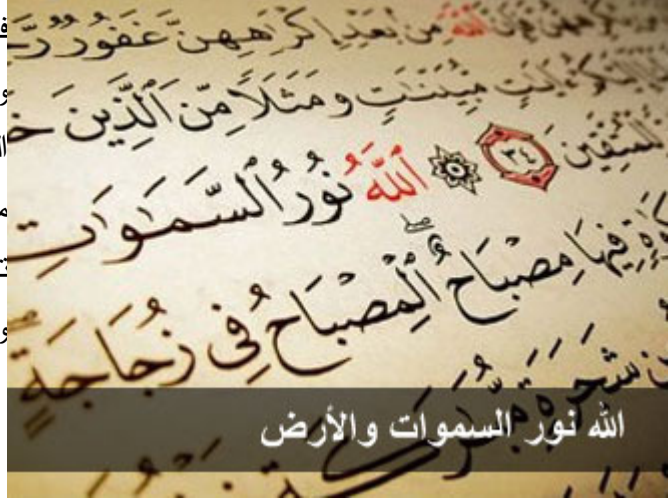 فإن ٱللَّهَ مِنۢ بَعْدِ إِكْرَٰهِهِنَّ غَفُورٌ رَّحِ
ءَايَٰتٍ مُّبَيِّنَٰتٍ وَمَثَلًا مِّنَ ٱلَّذِينَ خَ
لِّلْمُتَّقِينَ ٣٤ ٱللَّهُ نُورُ ٱلسَّمَٰوَٰتِ
فِيهَا مِصْبَاحٌ ۖ ٱلْمِصْبَاحُ فِى زُجَاجَةٍ
شَجَرَةٍ مُّبَٰرَكَةٍ
الله نور السموات والأرض